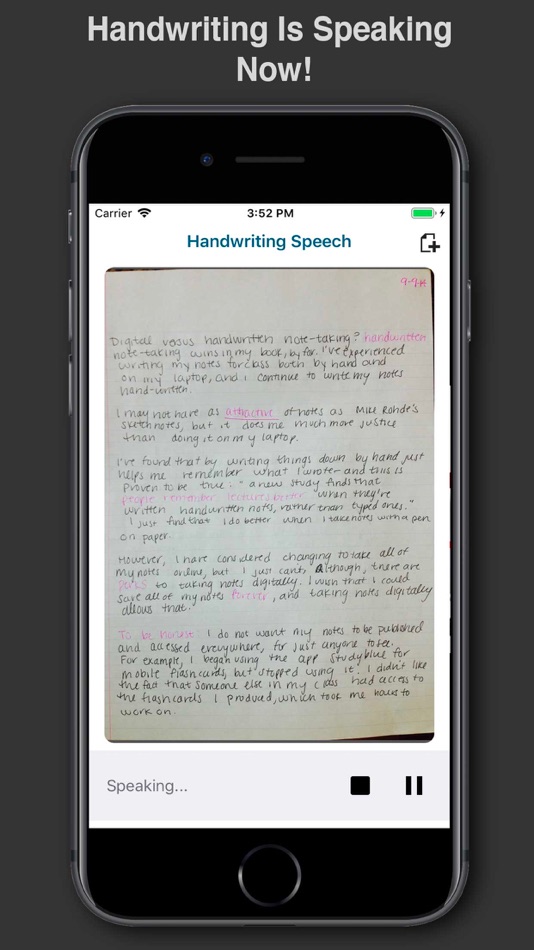 Handwriting Is Speaking
Now!
Carrier
3:52 PM
Handwriting Speech
Digital versus handwritten note-taking? handwritten
note-taking wins in my book, by far. I've experienced
writing my notes for class both by hand and
on my laptop, and i continue to write my notes
hand-written.
I may not have as attractive of notes as Mike Rohde's
sketchnotes, but it does me much more justice
than doing it on my laptop.
I've found that by writing things down by hand just
helps me remember what I wrote- and this is
proven to be true. "a new study finds that
people remember lectures better "when they're
written handwritten notes, rather than typed ones."
I just find that I do better when I take notes with a pen
on paper.
However, I have considered changing to take all of
my notes online, but I just can't. Although, there are
perks to taking notes digitally. I wish that I could
save all of my notes forever, and taking notes digitally
allows that.
To be honest I do not want my notes to be published
and accessed everywhere, for just anyone to see.
For example, I began using the app Studyblue for
mobile flashcards, but stopped using it. I didn't like
the fact that someone else in my class had access to
the flashcards I produced, which took me hours to
work on.
Speaking...